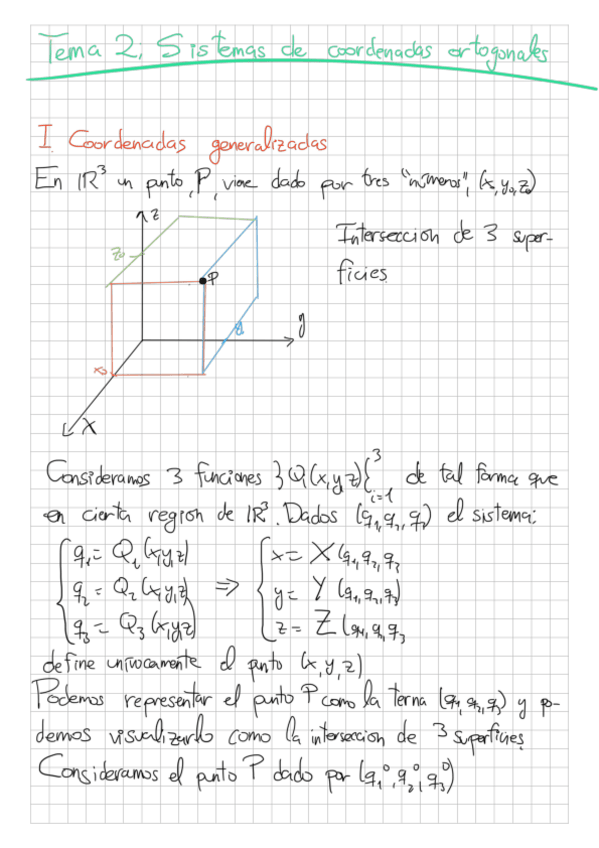 Tema 2. Sistemas de coordenadas ortogonales
I. Coordenadas generalizadas
En IR³ un punto, P, viene dado por tres "números", (x₀, y₀, z₀)
z
Intersección de 3 super-
ficies
z₀
P
y
x₀
x
Consideramos 3 funciones }Qᵢ(x,y,z){³ᵢ₌₁ de tal forma que
en cierta region de IR³. Dados (q₁, q₂, q₃) el sistema:
q₁ = Q₁(x,y,z) x = X(q₁, q₂, q₃
q₂ = Q₂(x,y,z) ⇒ y = Y(q₁, q₂, q₃)
q₃ = Q₃(x,y,z) z = Z(q₁, q₂, q₃
define unívocamente el punto (x, y, z)
Podemos representar el punto P como la terna (q₁, q₂, q₃) y po-
demos visualizarlo como la interseccion de 3 superficies
Consideramos el punto P dado por (q₁⁰, q₂⁰, q₃⁰)